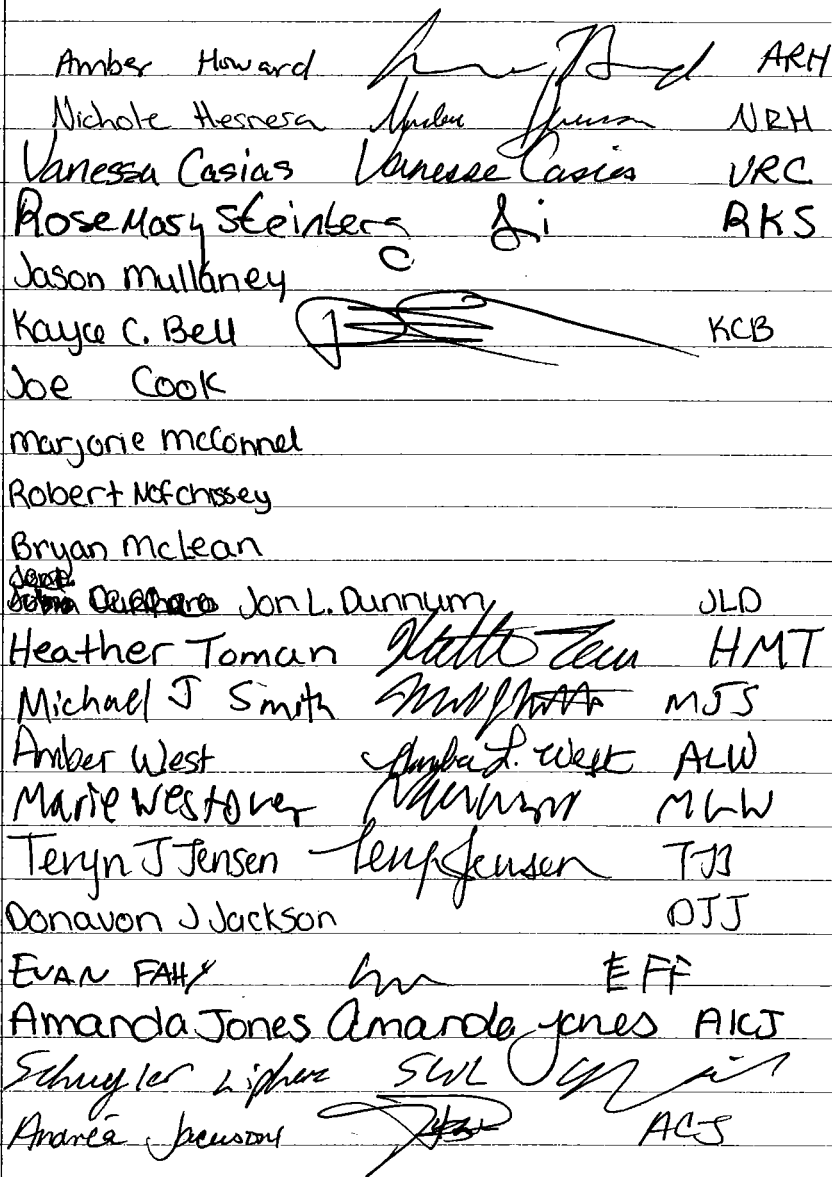 Amber Howard ARH
Nichole NRH
Vanessa Casias Vanessa Casias VRC
RoseMary Steinberg RKS
Jason Mullaney
Kayce C. Bell KCB
Joe Cook
Marjorie McConnel
Robert Nofchissey
Bryan McLean
Jon L. Dunnum JLD
Heather Toman HMT
Michael J Smith MJS
Amber West Amber L. West ALW
Marie Westover MLW
Teryn J Jensen Teryn Jensen TJJ
Donavon J Jackson DJJ
EVAN FAHY EFF
Amanda Jones Amanda Jones AKJ
Schuyler SWL
Andrea ACJ